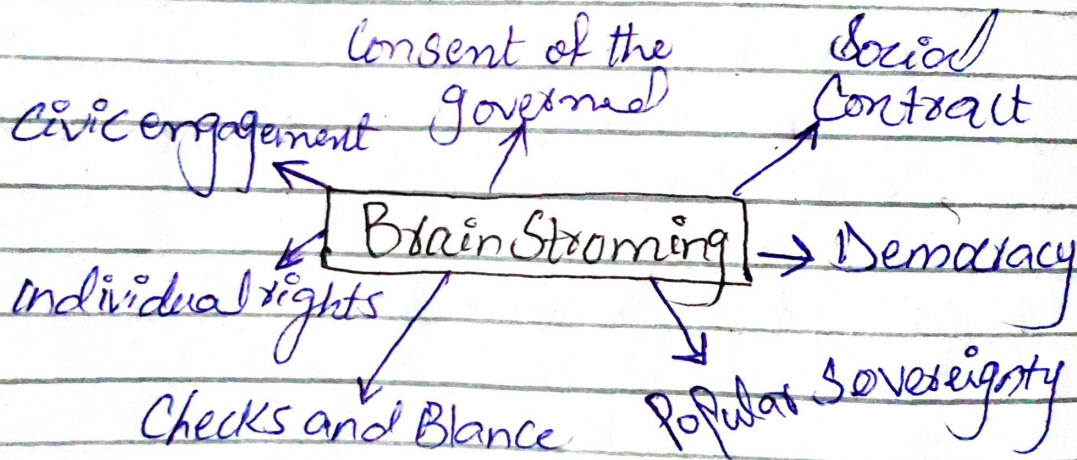 Consent of the
governed
Social
Contract
Civic engagement
Brain Stroming
Democracy
individual rights
Checks and Blance
Popular Sovereignty